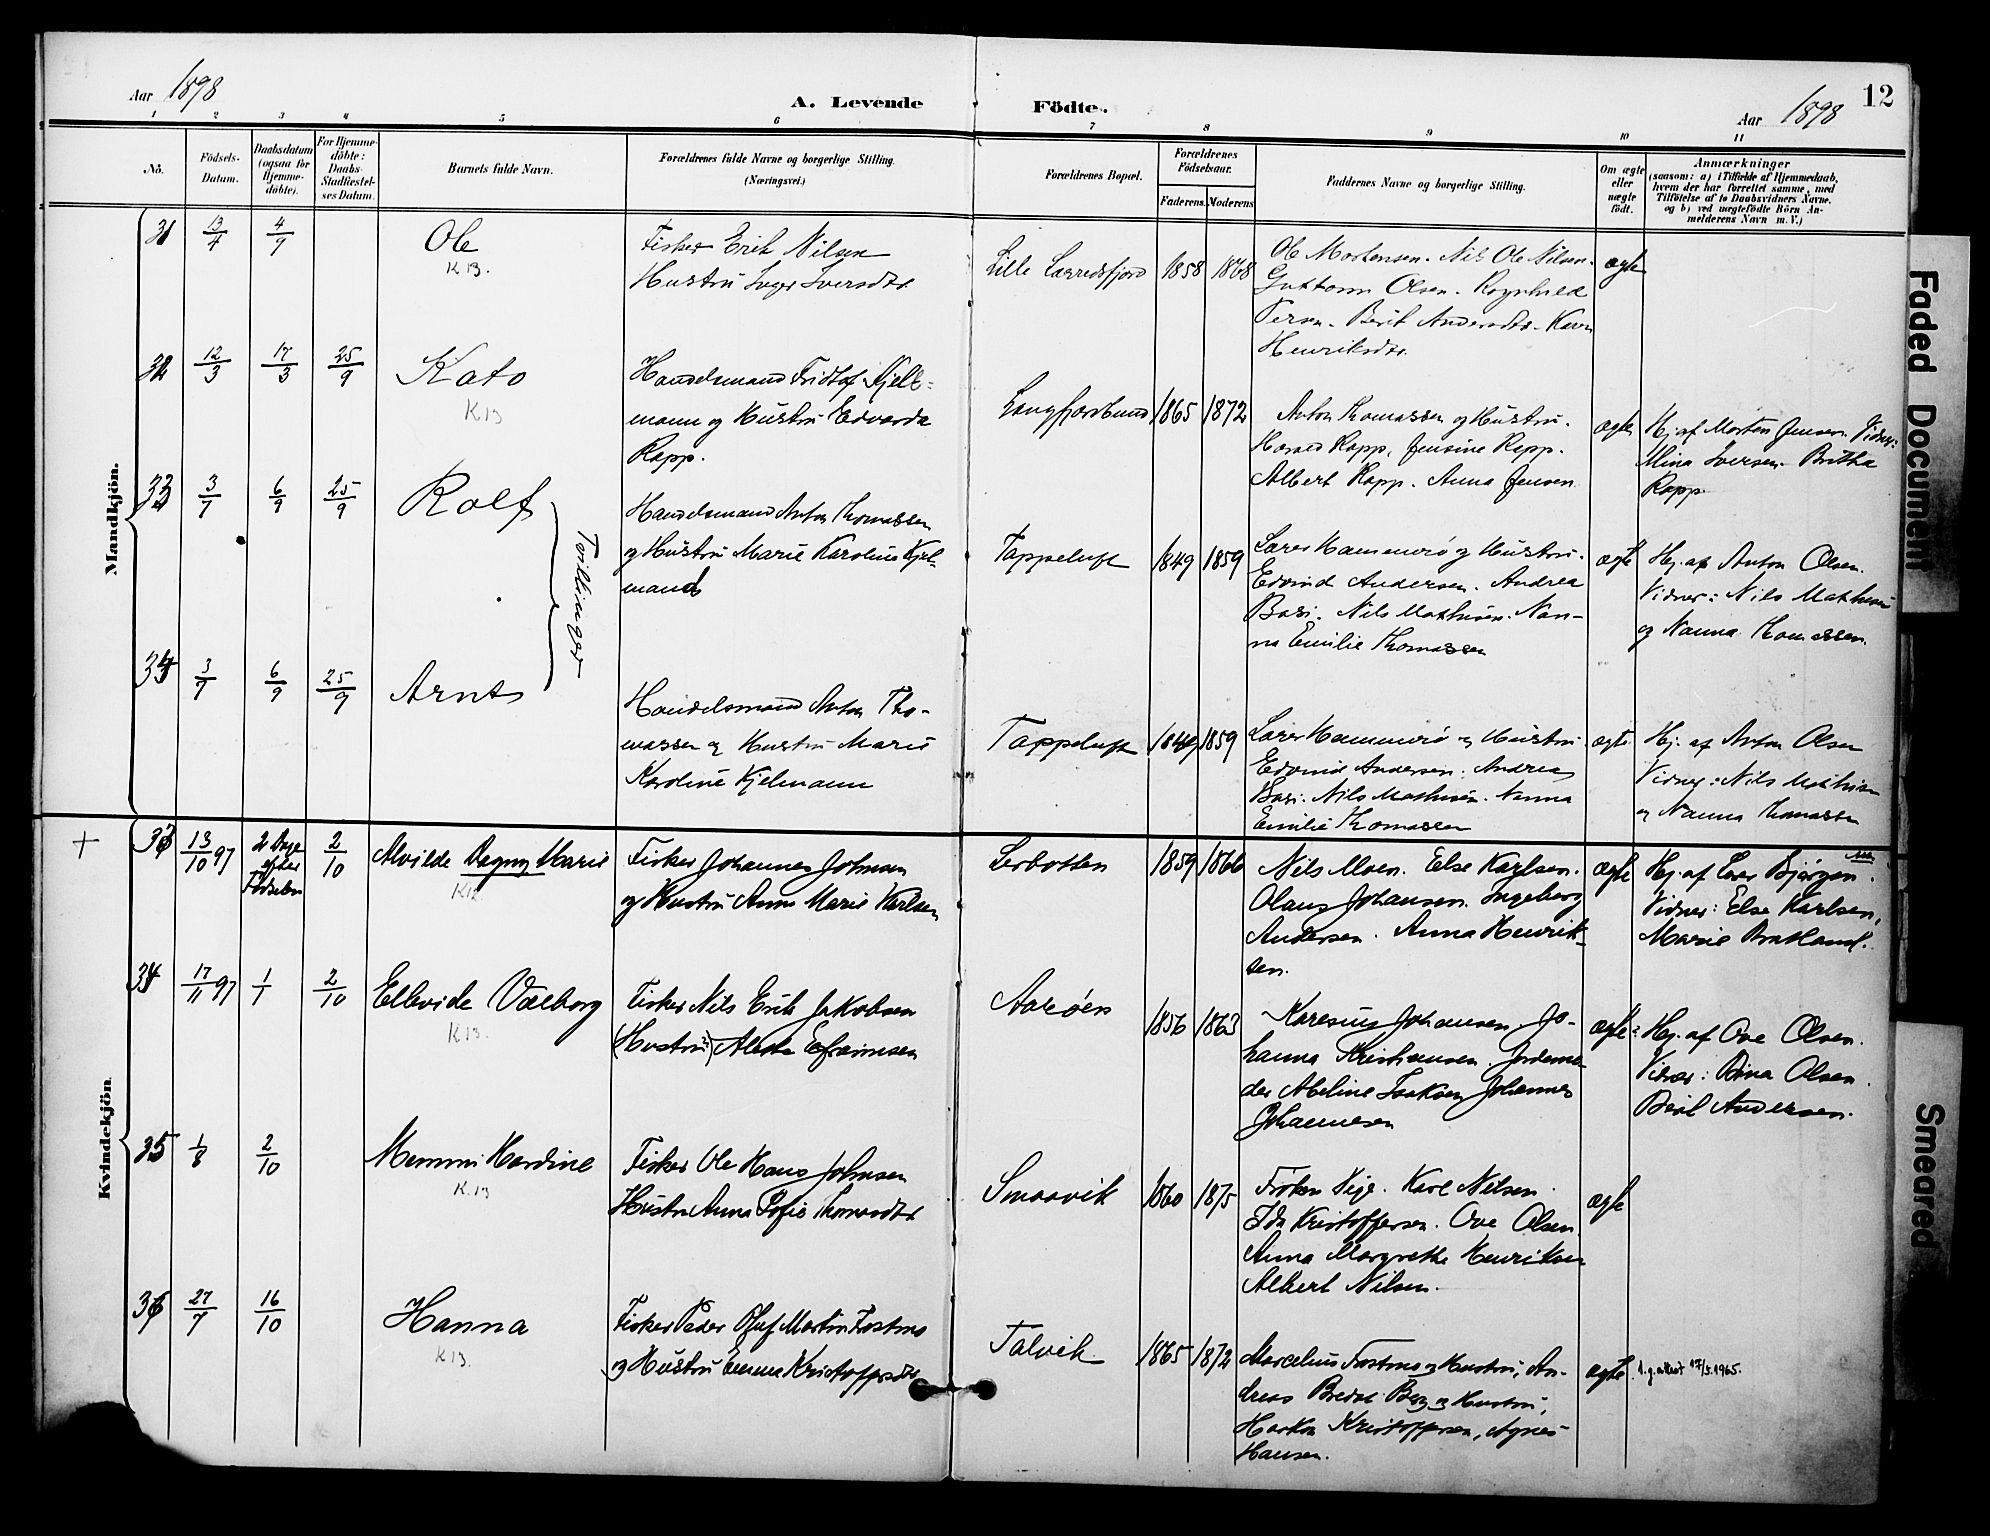 Aar 1898
A. Levende Födte.
Aar 1898
12
1 2 3 4 5 6 7 8 9 10 11
No.
Födsels-
Datum.
Daabsdatum
(ogsaa for
Hjemme-
döbte).
For Hjemme-
döbte:
Daabs-
Stadfæstel-
ses Datum.
Barnets fulde Navn.
Forældrenes fulde Navne og borgerlige Stilling.
(Næringsvei.)
Forældrenes Bopæl.
Forældrenes
Födselsaar.
Faderens. Moderens.
Faddernes Navne og borgerlige Stilling.
Om ægte
eller
uægte
født.
Anmærkninger
(saasom: a) i Tilfælde af Hjemmedaab,
hvem der har forrettet samme, med
Tilföielse af to Daabsvidners Navne.
og b) ved uægtefödte Börn An-
melderens Navn m. V.)
Mandkjön.
31 13/4 4/9
Ole
K13.
Fisker Erik Nilsen
Hustru Inger Iversdtr
Lille Lerredsfjord 1858 1868
Ole Mortensen. Nils Ole Nilsen.
Guttorm Olsen. Ragnhild
Persen. Berit Andersdtr. Karen
Henriksdtr.
ægte
32 12/3 17/3 25/9
Kato
K13
Handelsmand Fridtjof Kjell-
mann og Hustru Edvarda
Rapp.
Langfjordbund 1865 1872
Anton Thomassen og Hustru.
Harald Rapp, Jensine Rapp.
Albert Rapp. Anna Jensen
ægte
Hj. af Morten Jensen. Vidner:
Mina Iversen. Britha
Rapp.
33 3/7 6/9 25/9
Rolf
Tvillinger
Handelsmand Anton Thomassen
og Hustru Marie Karoline Kjel-
mand
Tappeluft 1849 1859
Lærer Hammerø og Hustru.
Edvind Andersen. Andrea
Basi. Nils Mathisen. Nan-
na Emilie Thomassen
ægte
Hj. af Anton Olsen.
Vidner: Nils Mathisen
og Nanna Thomassen.
34 3/7 6/9 25/9
Arnt
Handelsmand Anton Tho-
massen og Hustru Marie
Karoline Kjelmann
Tappeluft 1849 1859
Lærer Hammerø og Hustru.
Edvind Andersen. Andrea
Basi. Nils Mathisen. Nanna
Emilie Thomassen
ægte
Hj. af Anton Olsen
Vidner: Nils Mathisen
og Nanna Thomassen
Kvindekjön.
+ 33 13/10 97
2 Dage
efter
Fødselen
2/10
Alvilde Dagny Marie
K12
Fisker Johannes Johnsen
og Hustru Anne Marie Karlsen
Lerbotten 1859 1866
Nils Moen. Else Karlsen.
Olaus Johansen. Ingeborg
Andersen. Anna Henrik-
sen.
ægte
Hj. af Lærer Bjørgen.
Vidner: Else Karlsen,
Marie Bratland.
34 17/11 97 1/1 2/10
Ellevide Valborg
K13.
Fisker Nils Erik Jakobsen
(Hustru) Aleta Efraimsen
Aarøen 1856 1863
Karesius Johansen. Jo-
hanna Kristiansen. Jordemo-
der Meline Isaksen Johannes
Johannesen
ægte
Hj. af Ove Olsen.
Vidner: Rina Olsen.
Berit Andersen.
35 1/8 2/10
Memmi Hardine
K.13
Fisker Ole Hans Johnsen
Hustru Anna Sofie Thomasdtr
Smaavik 1860 1875
Frøken Sige. Karl Nilsen.
Ida Kristoffersen. Ove Olsen.
Anna Margrethe Henriksen
Albert Nilsen.
ægte
36 27/7 16/10
Hanna
K13.
Fisker Peder Oluf Martin Fastmo
og Hustru Emma Kristoffersdtr
Talvik 1865 1872
Marcelius Fastmo og Hustru, An-
dreas Bredal Berg og Hustru,
Haakon Kristoffersen, Agnes
Hansen.
ægte
1. g. attest 17/5.1965.
Faded Document
Smeared